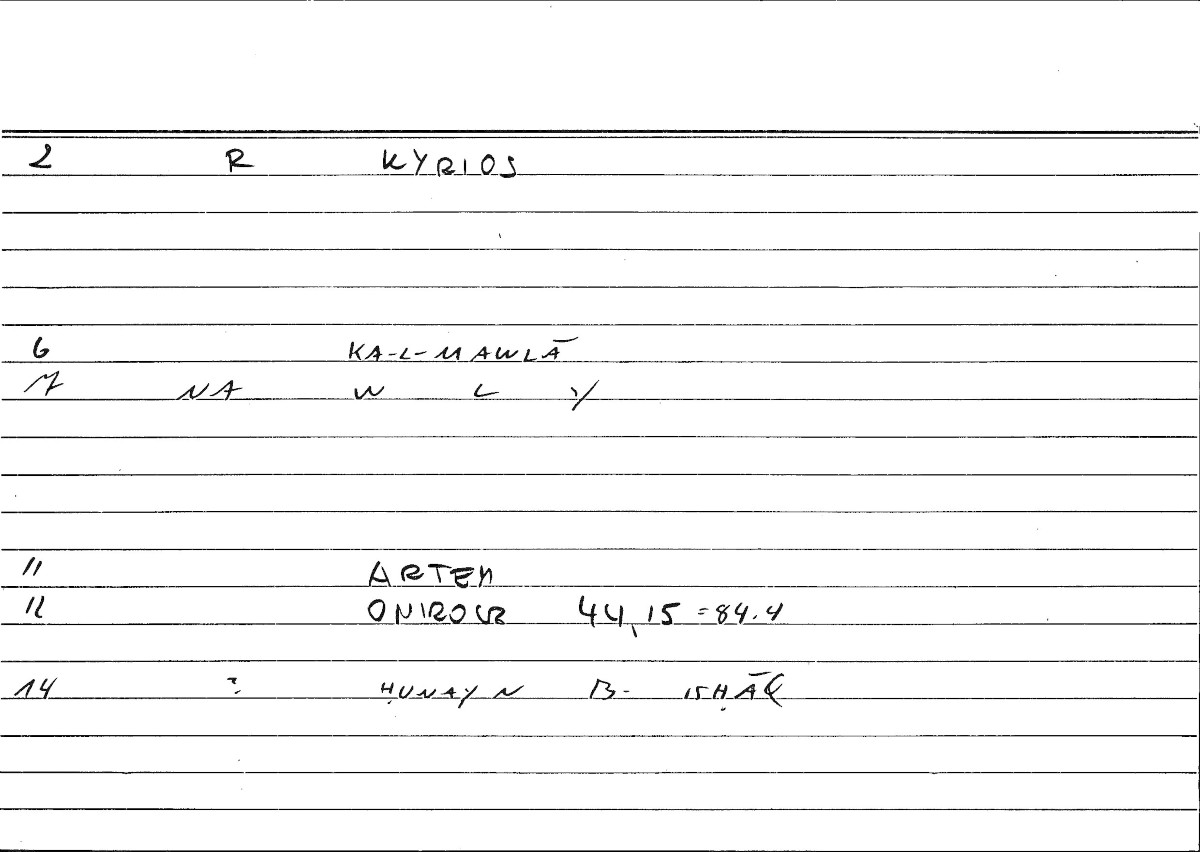 2 R KYRIOS
6 KA-L-MAWLĀ
7 NA W L Y
11 ARTEM
12 ONIROCR 44,15 =84.4
14 ? ḤUNAYN B- ISḤĀQ